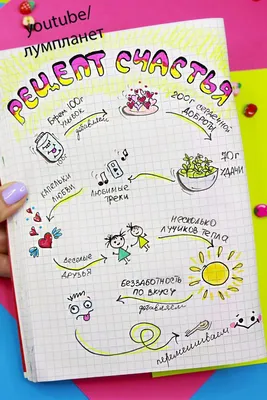 youtube/
лумпланет
РЕЦЕПТ СЧАСТЬЯ
Берём 100г
улыбок
добавляем
200г сердечной
доброты
капельки
любви
любимые
треки
70г
удачи
весёлые
друзья
несколько
лучиков тепла
беззаботность
по вкусу
добавляем
перемешиваем